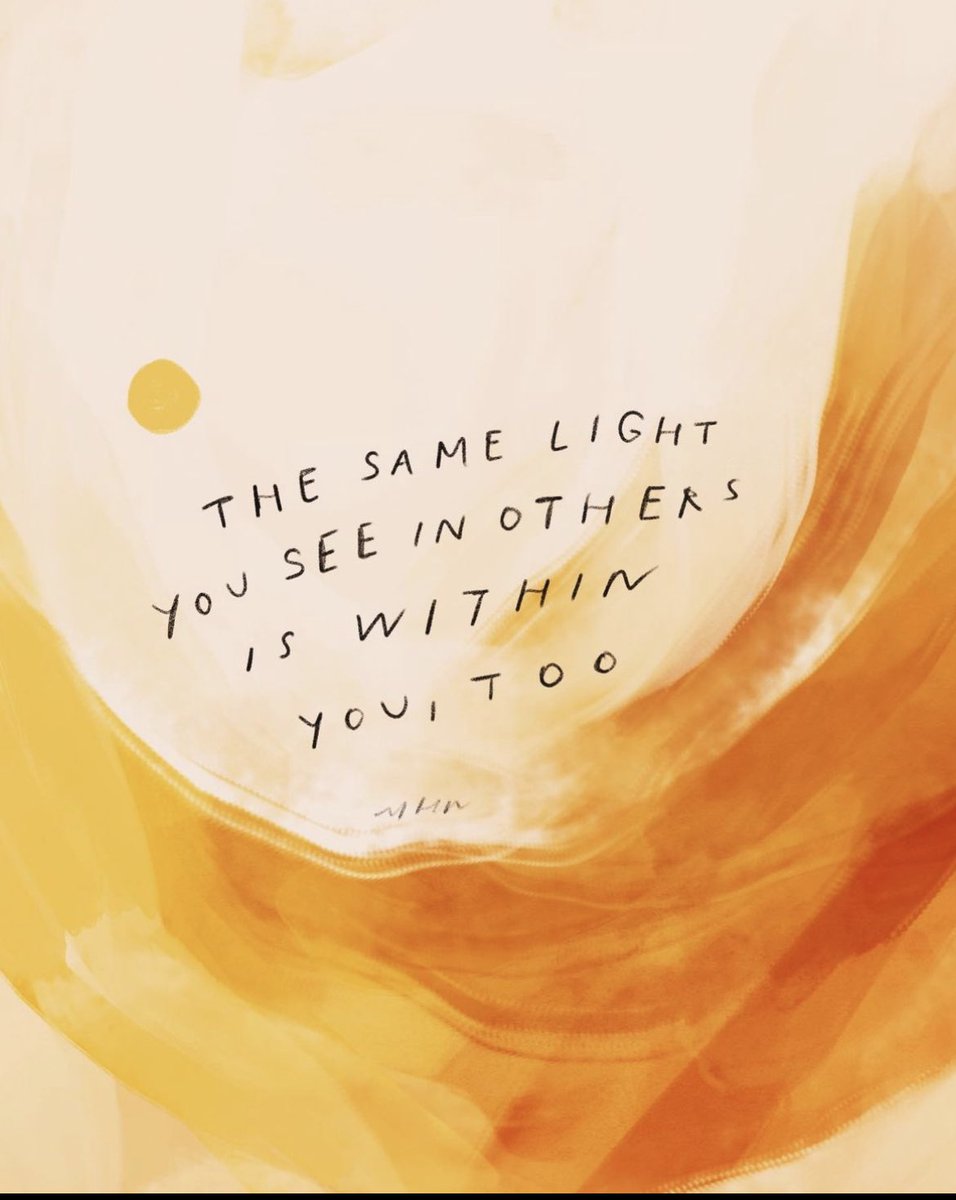 THE SAME LIGHT
YOU SEE IN OTHERS
IS WITHIN
YOU, TOO
MHN